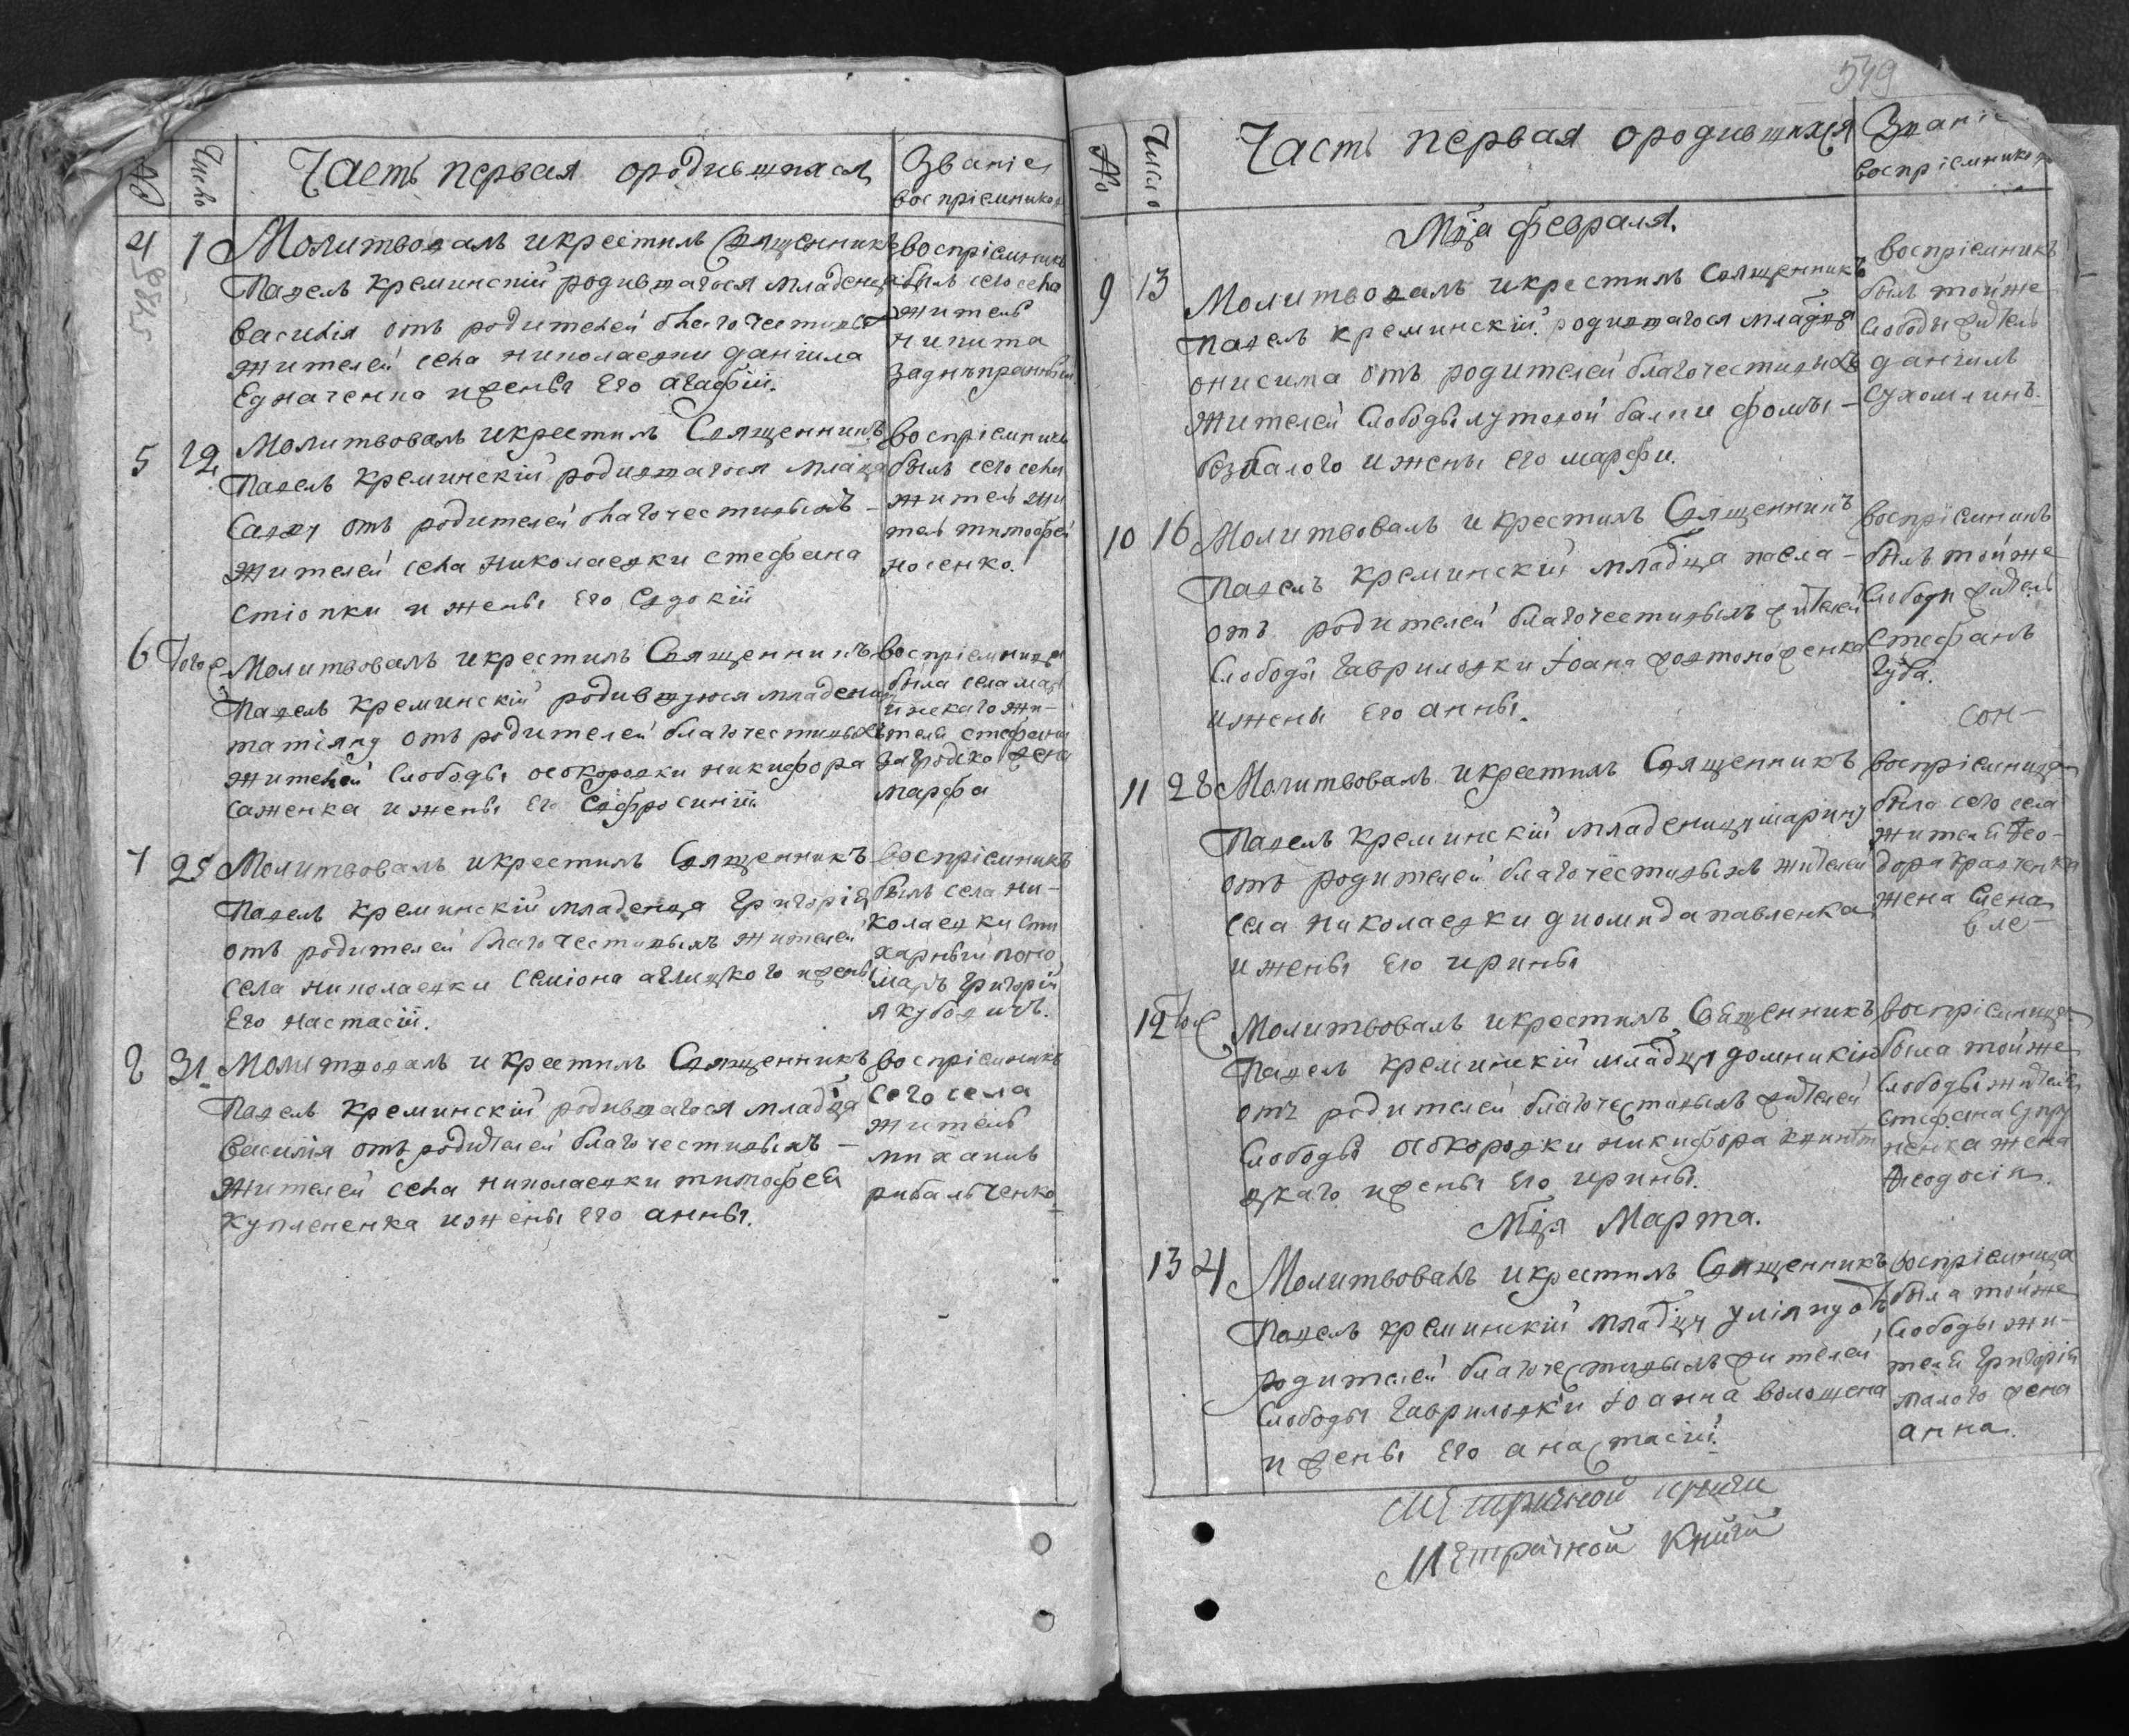 №
Число
Часть первая ородившихся
Званіе
воспріемников
548об
4
1
Молитвовалъ икрестилъ Священникъ
Павелъ Креминскій родившагося младенца
василія отъ родителей благочестивыхъ
жителей села николаевки даніила
Едначенка ижены Его агафіи.
воспріемникъ
былъ сего села
житель
никита
заднѣпраный
5
12
Молитвовалъ икрестилъ Священникъ
Павелъ Креминскій родившагося млад҃ца
Савву отъ родителей благочестивыхъ –
жителей села николаевки стефана
стіопки и жены Его Евдокіи
воспріемникъ
былъ сего села
житель жи
тель тимофей
носенко.
6
Тогож
Молитвовалъ икрестилъ Священникъ
Павелъ Креминскій родившуюся младеницу
татіяну отъ родителей благочестивыхъ
жителей Слободы осокоровки никифора
саженка и жены Его Ефросиніи
воспріемница
была села
жи–
теля стефана
жена
марфа
7
25
Молитвовалъ икрестилъ Священникъ
Павелъ Креминскій младенца Григорія
отъ родителей благочестивыхъ жителей
села николаевки семіона аглицкого ижены
Его настасіи.
воспріемникъ
былъ села ни–
колаевки сти
харный поно
марь григорій
якубовичъ.
8
31
Молитвовалъ икрестилъ Священникъ
Павелъ Креминскій родившагося млад҃ца
василія отъ родителей благочестивыхъ –
жителей села николаевки тимофея
куплененка ижены его анны.
воспріемникъ
сего села
житель
михаилъ
рибальченко
549
№
Число
Часть первая ородившихся
Званіе
воспріемников
Мц҃а февраля.
9
13
Молитвовалъ икрестилъ Священникъ
Павелъ креминскій родившагося млад҃ца
онисима отъ родителей благочестивыхъ
жителей Слободы лутовой балки фомы –
безпалого ижены его марфи.
воспріемникъ
былъ тойже
слободы житель
даніилъ
сухомлинъ.
10
16
Молитвовалъ икрестилъ Священникъ
Павелъ Креминскій млад҃ца павла –
отъ родителей благочестивыхъ жителей
слободы гавриловки іоана
ижены Его анны.
воспріемникъ
былъ тойже
слободы житель
стефанъ
губа.
сон–
11
28
Молитвовалъ икрестилъ Священникъ
Павелъ Креминскій младеницу марину
отъ родителей благочестивыхъ жителей
села николаевки диомида павленка
ижены Его ирины
воспріемница
была сего села
жителя Фео–
дора кравченка
жена Елена
12
тогож
Молитвовалъ икрестилъ Священникъ
Павелъ Креминскій млад҃цу домникію
отъ родителей благочестивыхъ жителей
слободы осокоровки никифора квинт
цкаго ижены Его ирины.
воспріемница
была тойже
слободы жителя
стефана супру
ненка жена
Феодосія.
Мц҃а Марта.
13
4
Молитвовалъ икрестилъ Священникъ
Павелъ креминскій млад҃цу уліяну отъ
родителей благочестивыхъ жителей
слободы гавриловки іоанна волошена
и жены Его анастасіи.
воспріемница
была тойже
слободы жи–
теля григорія
малого жена
анна.
Метричной книги
Метричной книги